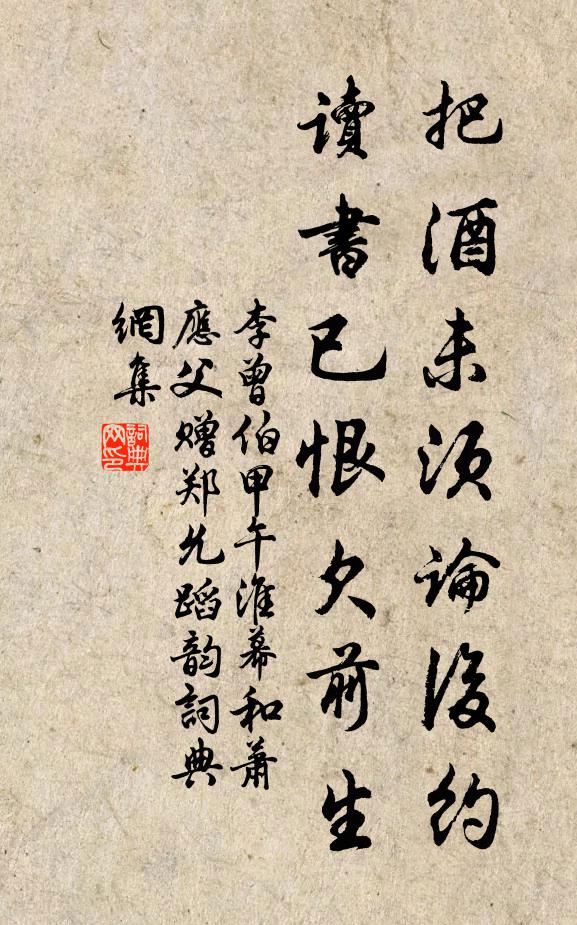 把酒未须論後約
讀書已恨欠前生
李曾伯甲午淮幕和蕭
應父贈郑允蹈韵詞典
網集
詞典网印